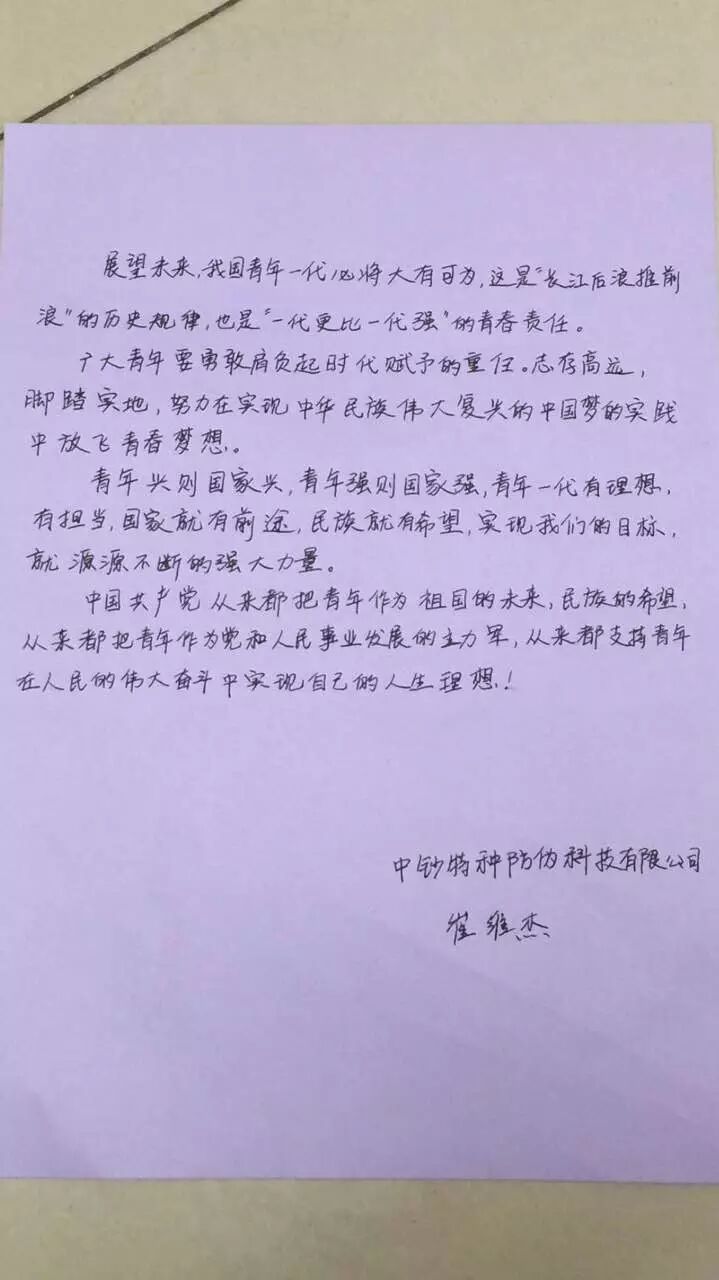 展望未来,我国青年一代必将大有可为,这是“长江后浪推前
浪”的历史规律,也是“一代更比一代强”的青春责任。
广大青年要勇敢肩负起时代赋予的重任。志存高远,
脚踏实地,努力在实现中华民族伟大复兴的中国梦的实践
中放飞青春梦想。
青年兴则国家兴,青年强则国家强,青年一代有理想,
有担当,国家就有前途,民族就有希望,实现我们的目标,
就源源不断的强大力量。
中国共产党从来都把青年作为祖国的未来,民族的希望,
从来都把青年作为党和人民事业发展的主力军,从来都支持青年
在人民的伟大奋斗中实现自己的人生理想!
中钞特种防伪科技有限公司
崔维杰